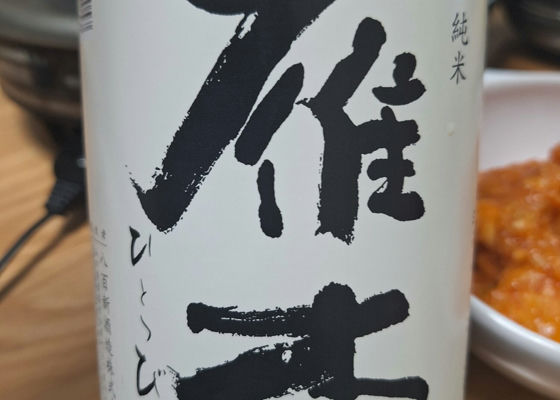 純米
雁木
ひとつび
八百新酒造株式